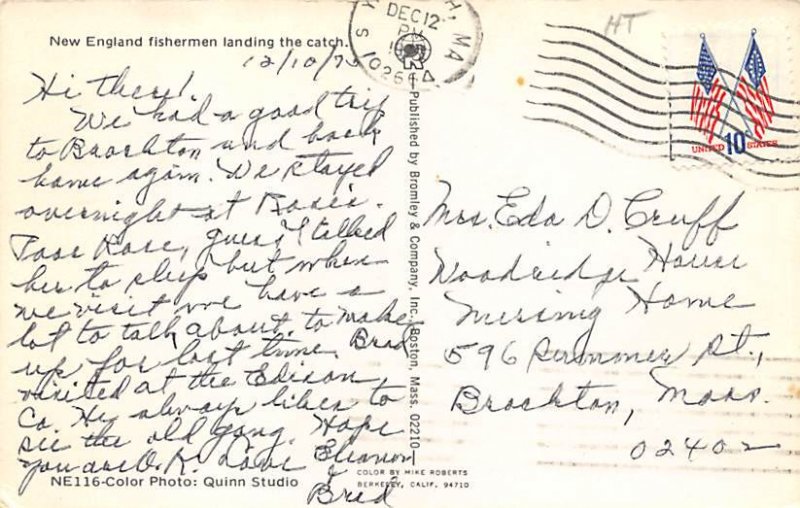 New England fishermen landing the catch.
12/10/75
Hi there!
We had a good trip
to Brockton and back
home again. We stayed
overnight at Rosie's.
Poor Rose, guess I talked
her to sleep but when
we visit we have a
lot to talk about. to make
up for lost time. Brad
visited at the Edison
Co. He always likes to
see the old gang. Hope
you are O.K. Love Eleanor
&
Brad
NE116-Color Photo: Quinn Studio
Published by Bromley & Company, Inc., Boston, Mass. 02210
COLOR BY MIKE ROBERTS
BERKELEY, CALIF. 94710
MA
DEC 12
PM
026
HT
UNITED 10c STATES
Mrs. Eda D. Cruff
Woodridge House
Nursing Home
596 Summer St.,
Brockton, Mass.
02402